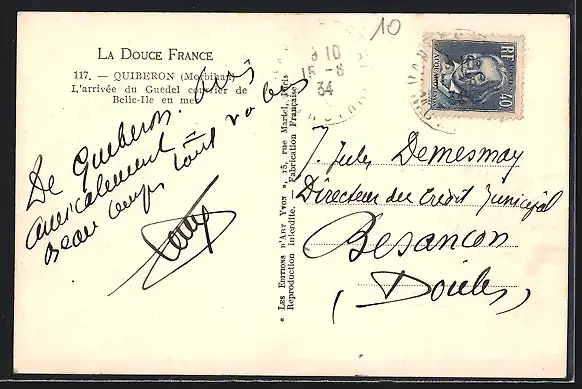 LA DOUCE FRANCE
117. — QUIBERON (Morbihan)
L'arrivée du Guedel courrier de
Belle-Ile en mer
De Quiberon.
amicalement
Beau temps tout va bien
« LES EDITIONS D'ART YVON », 15, rue Martel, Paris
Reproduction interdite. — Fabrication Française
10
3 10
15 -8
34
RF
JACQUARD
40c
J. Jules Demesmay
Directeur du Crédit Municipal
Besançon
(Doubs)